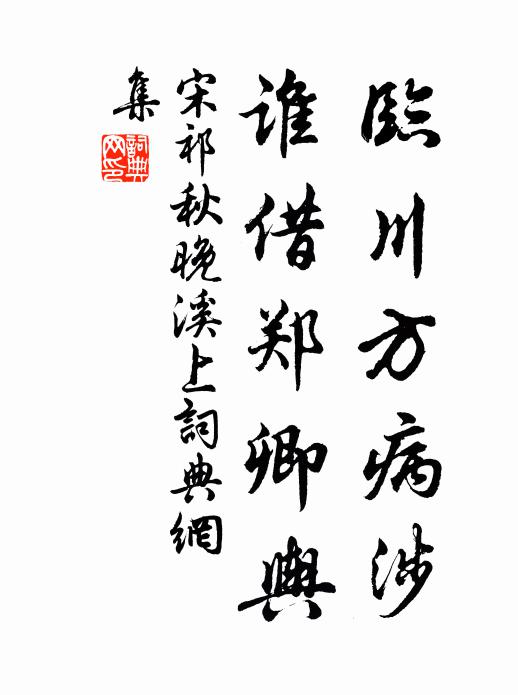 臨川方病涉
谁借郑卿輿
宋祁秋晚溪上詞典網
集
詞典网印